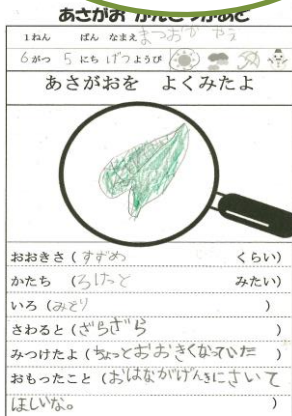 あさがお かんさつかあど
1ねん ばん なまえ まつおか やえ
6がつ 5にち げつようび
あさがおを よくみたよ
おおきさ(すずめ くらい)
かたち (ろけっと みたい)
いろ (みどり )
さわると(ざらざら )
みつけたよ(ちょっとおおきくなっていた )
おもったこと(おはながげんきにさいて
ほしいな。 )